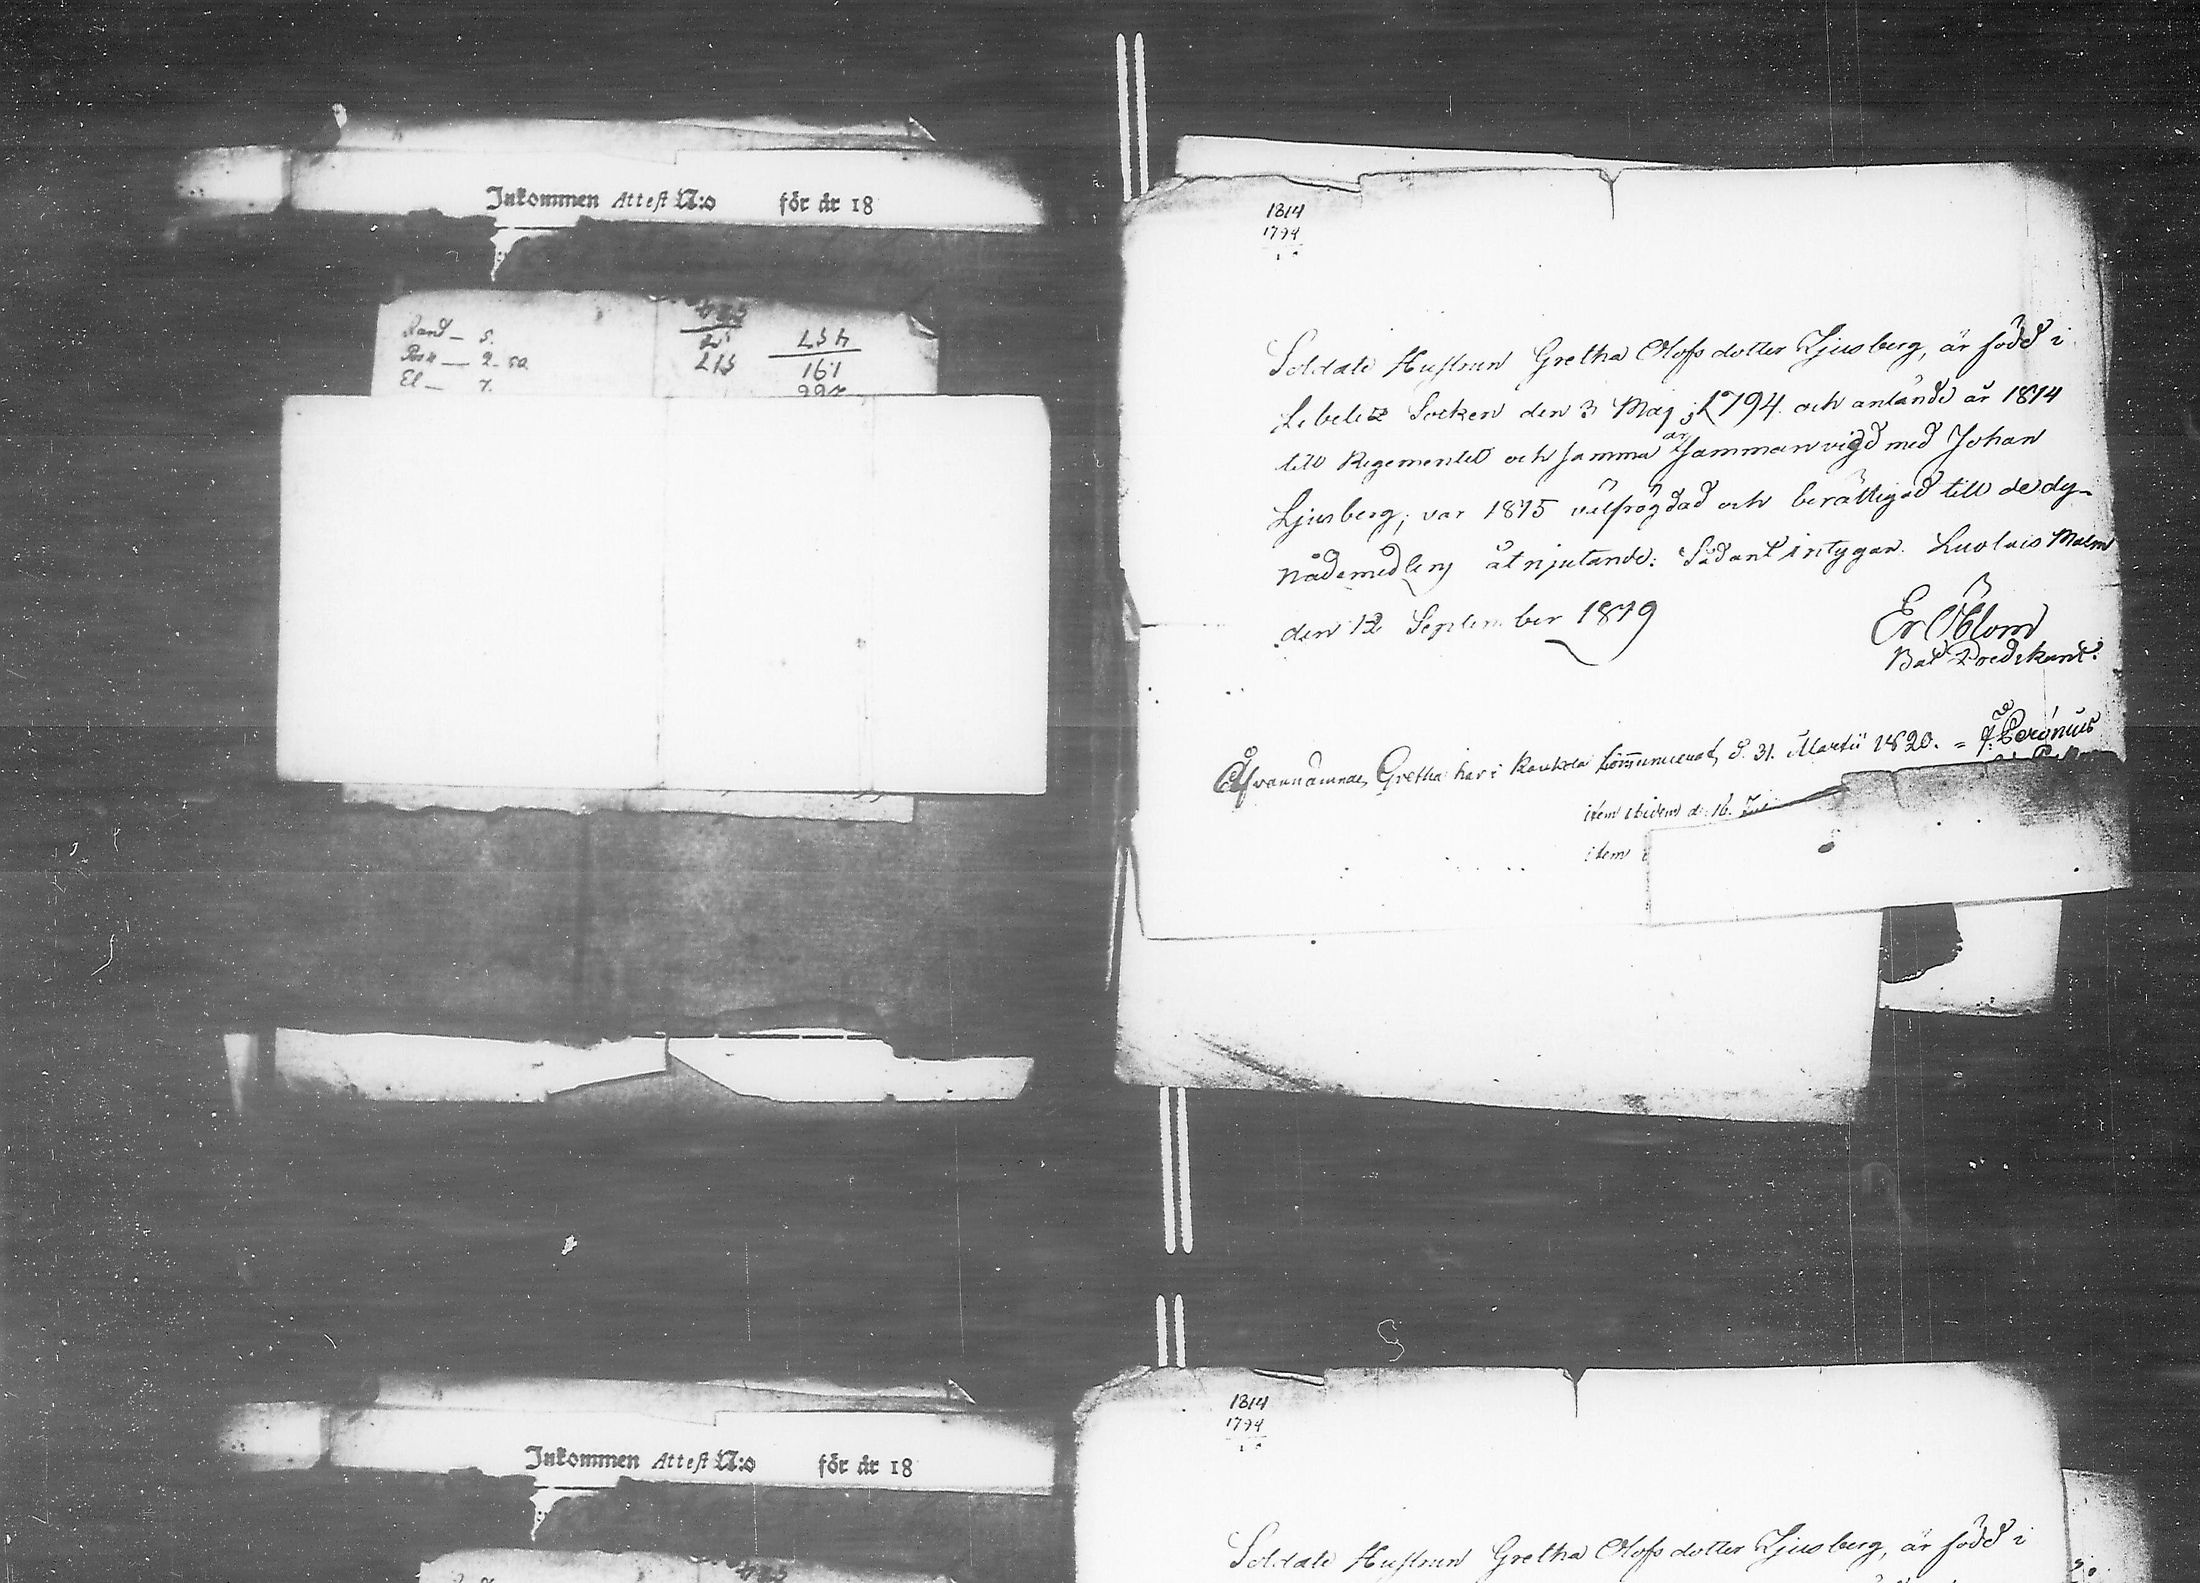 Inkommen Attest N:o för år 18
Rand — 5.
Post — 2-50
El — 7.
517
457
161
1814
1794
Soldats Hustrun Gretha Olofsdotter Ljusberg, är född i
Libelitz Socken den 3 Maj 1794. och anlände år 1814
till Regementet och samma år sammanvigd med Johan
Ljusberg, var 1815 välfrögdad och berättigad till de dy-
Nådemedlens åtnjutande: Sådant intygar. Malm
den 12 September 1819
Er Öblom
Bat Predikant.
Ofvannämnde, Gretha har i communicerat, d. 31. Martii 1820. =
item ibidem d. 16.
item
Inkommen Attest N:o för år 18
1814
1794
Soldats Hustrun Gretha Olofsdotter Ljusberg, är född i